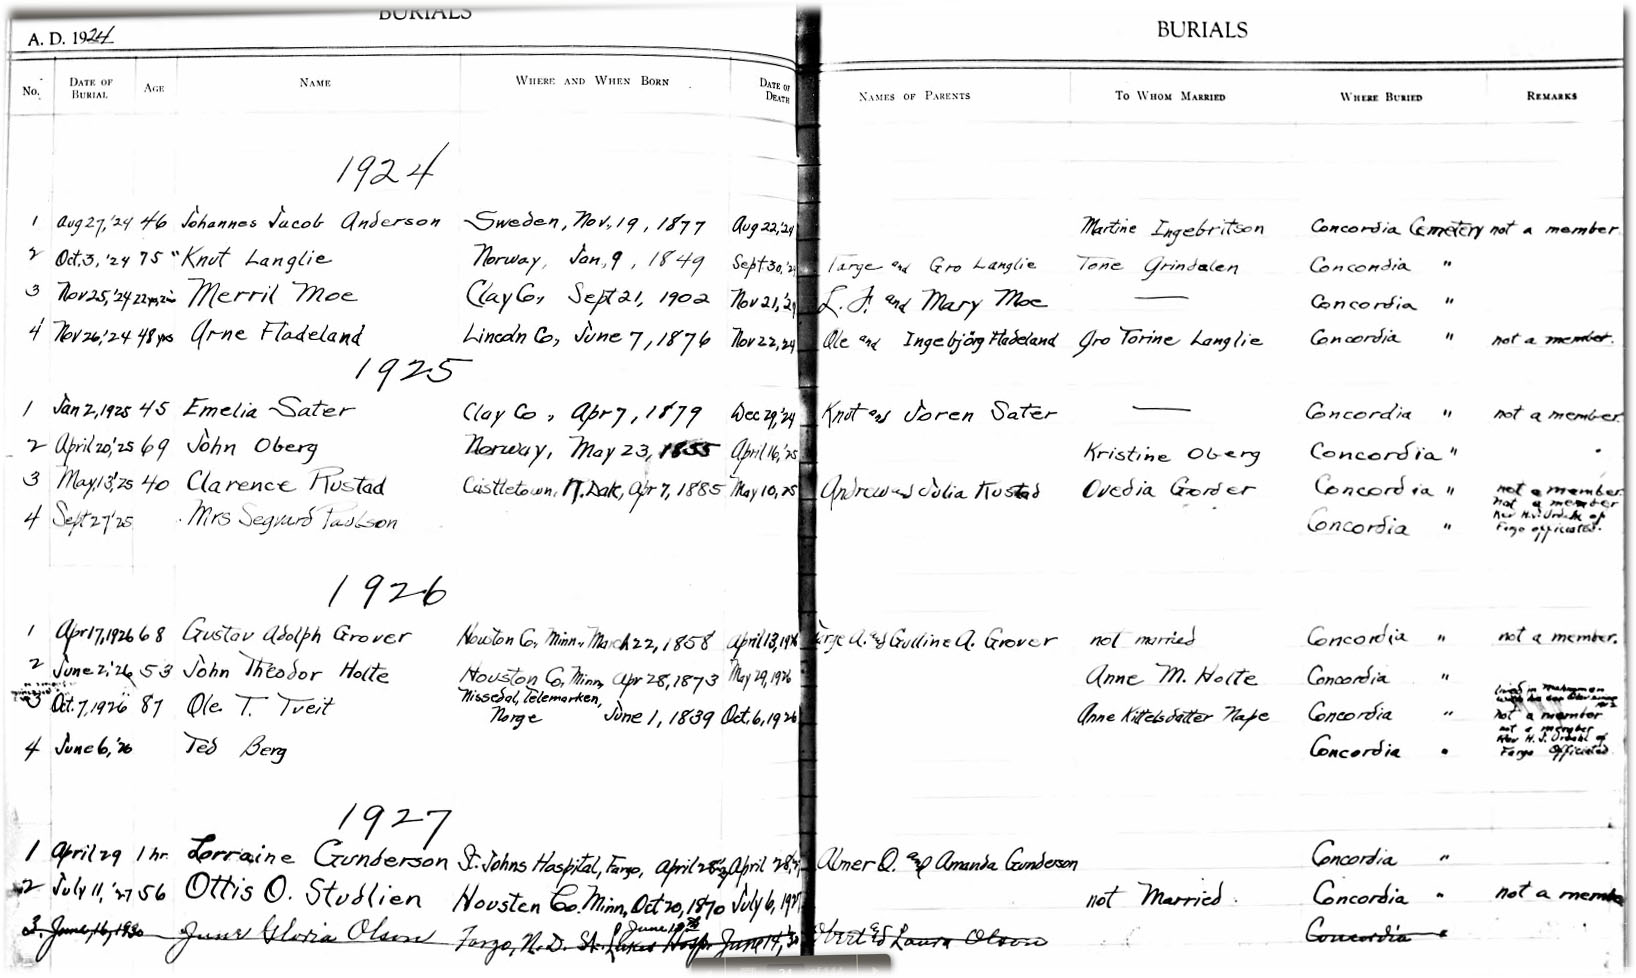 BURIALS
A. D. 1924
No. DATE OF BURIAL AGE NAME WHERE AND WHEN BORN DATE OF DEATH
BURIALS
NAMES OF PARENTS TO WHOM MARRIED WHERE BURIED REMARKS
1924
1 Aug 27, '24 46 Johannes Jacob Anderson Sweden, Nov. 19, 1877 Aug 22, '24 Martine Ingebritson Concordia Cemetery not a member
2 Oct. 3, '24 75 " Knut Langlie Norway, Jan, 9, 1849 Sept 30, '24 Targe and Gro Langlie Tone Grindalen Concordia "
3 Nov 25, '24 22 yrs, Merril Moe Clay Co, Sept 21, 1902 Nov 21, '24 L. F. and Mary Moe — Concordia "
4 Nov 26, '24 48 yrs Arne Fladeland Lincoln Co, June 7, 1876 Nov 22, 24 Ole and Ingebjörg Fladeland Gro Torine Langlie Concordia " not a member.
1925
1 Jan 2, 1925 45 Emelia Sater Clay Co, Apr 7, 1879 Dec 29, '24 Knut and Joren Sater — Concordia " not a member
2 April 20, '25 69 John Oberg Norway, May 23, 1855 April 16, '25 Kristine Oberg Concordia " "
3 May, 13, '25 40 Clarence Rustad Castletown, N. Dak, Apr 7, 1885 May 10, 25 Andrew and Julia Rustad Ovedia Gorder Concordia " not a member
4 Sept 27 '25 Mrs Segvard Paulson Concordia " not a member
Rev H. J. Urdahl of
Fargo officiated.
1926
1 Apr 17, 1926 68 Gustav Adolph Grover Houston Co, Minn, March 22, 1858 April 13, 1926 Targe A. and Gulline A. Grover not married Concordia " not a member.
2 June 2, '26 53 John Theodor Holte Houston Co, Minn, Apr 28, 1873 May 29, 1926 Anne M. Holte Concordia "
Nissedal, Telemarken, lived in Mahnomen
3 Oct. 7, 1926 87 Ole T. Tveit Norge June 1, 1839 Oct. 6, 1926 Anne Kittelsdatter Nape Concordia " not a member
4 June 6, '26 Ted Berg Concordia " not a member
Rev H. J. Urdahl of
Fargo Officiated
1927
1 April 29 1 hr. Lorraine Gunderson St. Johns Hospital, Fargo, April 28, April 28, Almer O. and Amanda Gunderson Concordia "
2 July 11, '27 56 Ottis O. Studlien Housten Co. Minn, Oct 20, 1870 July 6, 1927 not Married. Concordia " not a member
3. June, 16, 1930 June Gloria Olson Fargo, N. D. St. Lukes Hosp. June 14, '30 Obert and Laura Olson Concordia "